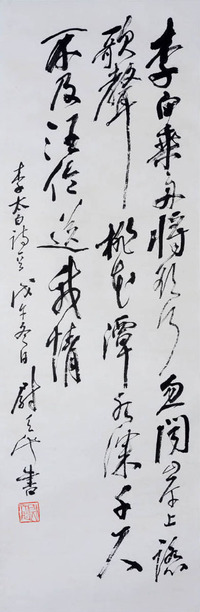 李白乘舟將欲行忽闻岸上踏
歌聲桃花潭水深千尺
不及汪伦送我情
李太白詩戊午冬日尉天池書